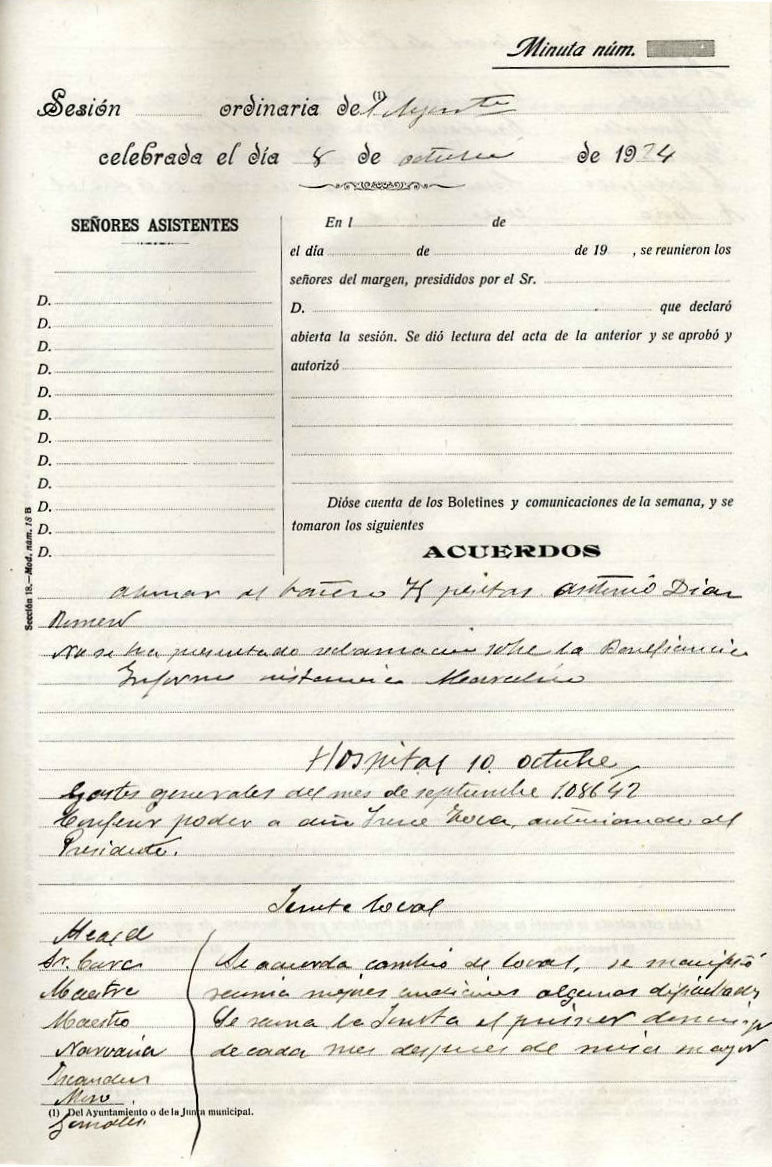 Minuta núm.
Sesión ordinaria de (1)
celebrada el día 8 de octubre de 1924
SEÑORES ASISTENTES
D.
D.
D.
D.
D.
D.
D.
D.
D.
D.
D.
D.
En l de
el día de de 19 , se reunieron los
señores del margen, presididos por el Sr.
D. que declaró
abierta la sesión. Se dió lectura del acta de la anterior y se aprobó y
autorizó
Dióse cuenta de los Boletines y comunicaciones de la semana, y se
tomaron los siguientes
ACUERDOS
Sección 18.—Mod. núm. 18 B
abonar al 75 pesetas Antonio Diaz
Romero
No se ha presentado reclamacion sobre la Beneficencia
Informe instancia Marcelino
Hospital 10 octubre
Gastos generales del mes de septiembre 1.086 42
Conferir poder a Irene autorizando al
Presidente.
Junta local
Alcald
Sr. Cura
Maestra
Maestro
Narvaiza
Miro
González
Se acuerda cambio de local, se manifestó
reunia mejores condiciones algunas dificultades
Se reuna la Junta el primer domingo
de cada mes despues de misa mayor
(1) Del Ayuntamiento o de la Junta municipal.